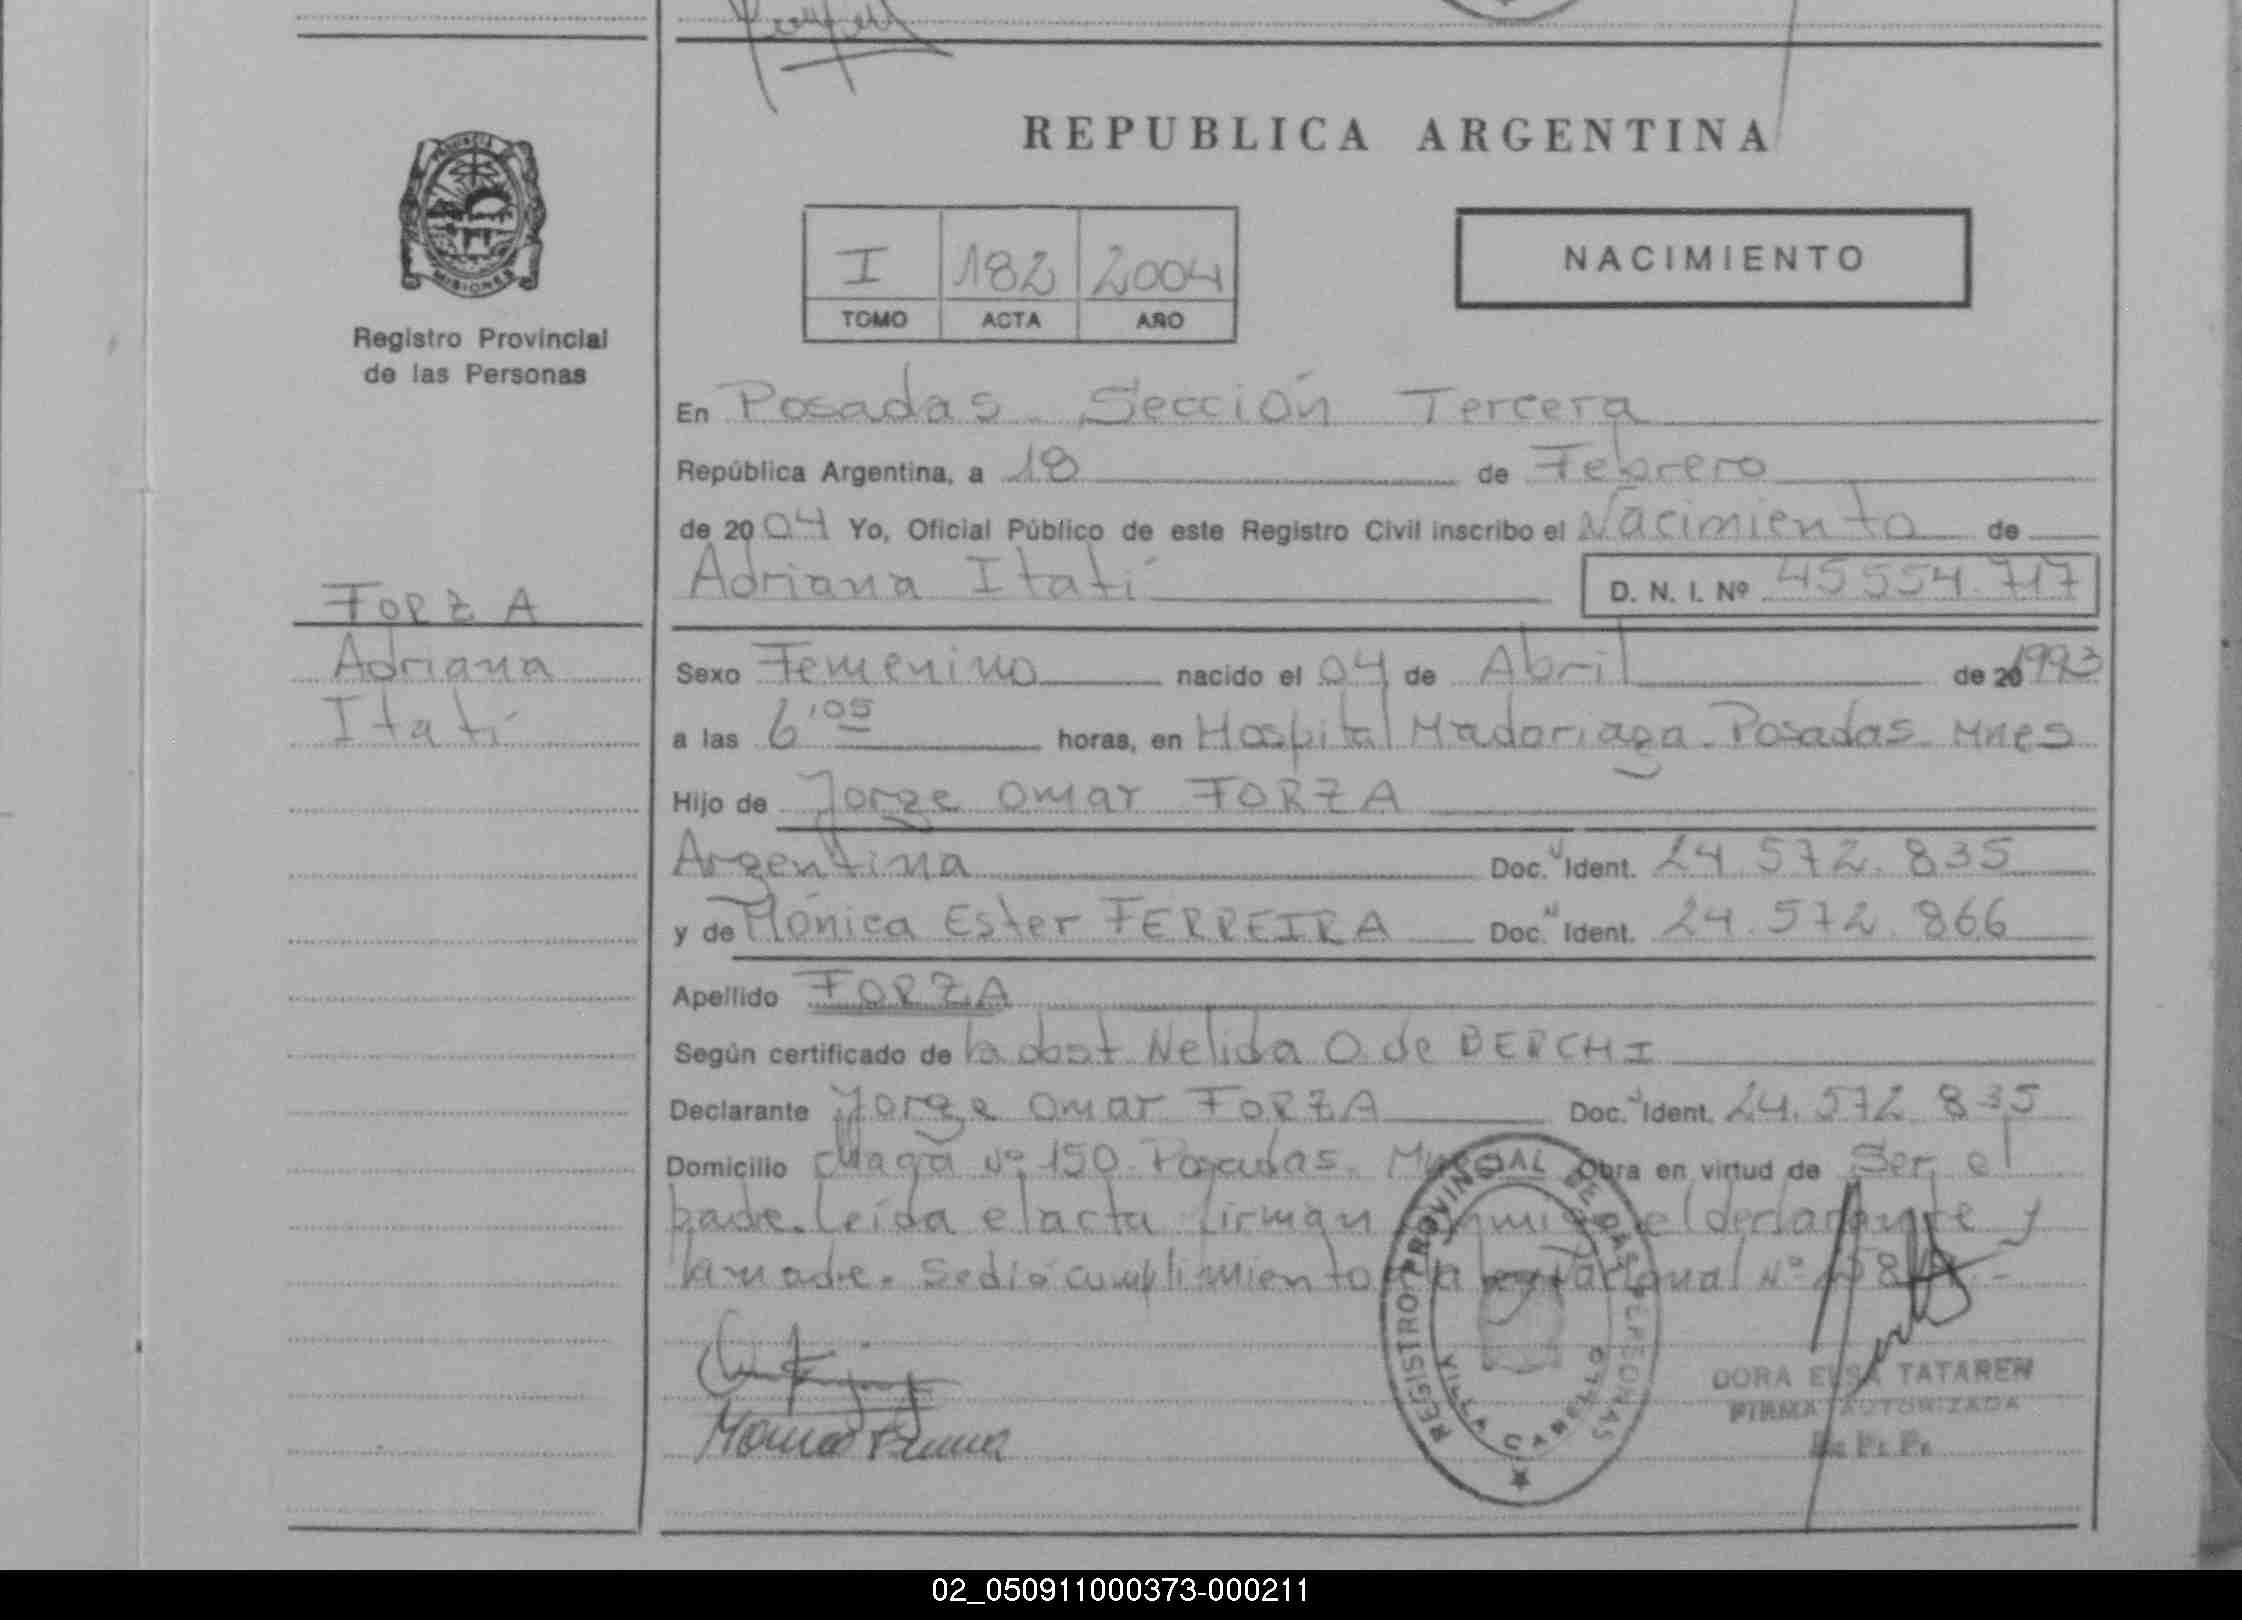 REPUBLICA ARGENTINA
PROVINCIA DE
MISIONES
Registro Provincial
de las Personas
NACIMIENTO
I 182 2004
TOMO ACTA AÑO
En Posadas Sección Tercera
República Argentina, a 18 de Febrero
de 2004 Yo, Oficial Público de este Registro Civil inscribo el Nacimiento de
Adriana Itatí D. N. I. Nº 45554.717
FORZA
Adriana
Itatí
Sexo Femenino nacido el 04 de Abril de 20 1993
a las 6,05 horas, en Hospital Madariaga. Posadas. Mnes
Hijo de Jorge Omar FORZA
Argentina Doc. Ident. 24.572.835
y de Mónica Ester FERREIRA Doc. Ident. 24.572.866
Apellido FORZA
Según certificado de la obst Nelida O. de BERCHI
Declarante Jorge Omar FORZA Doc. Ident. 24.572.835
Domicilio Nº 150. Posadas. Obra en virtud de Ser el
padre. Leída el acta firman conmigo el declarante y
la madre. Se dió cumplimiento a la Nº
REGISTRO PROVINCIAL DE LAS PERSONAS
VILLA CABELLO
DORA ELSA TATAREN
FIRMA AUTORIZADA
R. P. P.
02_050911000373-000211